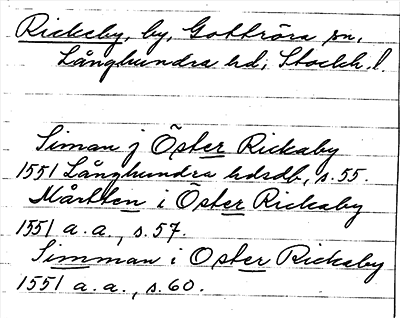 Rickeby, by, Gottröra sn,
Långhundra hd, Stockh. l.
Siman j Öster Rickaby
1551 Långhundra hdrdb, s. 55.
Mårtten i Öster Rickaby
1551 a. a., s. 57.
Simman i Oster Rickeby
1551 a. a., s. 60.